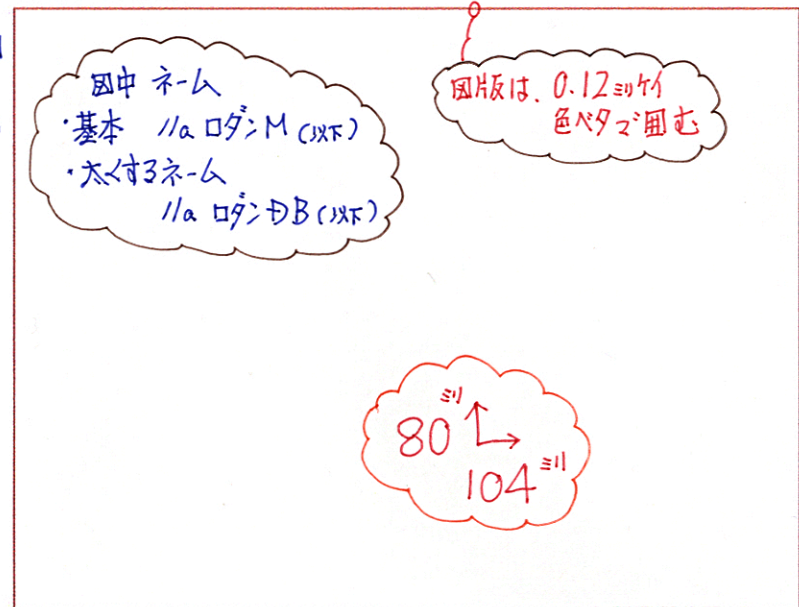 図中 ネーム
・基本 11a ロダンM(以下)
・太くするネーム
11a ロダンDB(以下)
図版は、0.12ミリケイ
色ベタで囲む
80ミリ
104ミリ